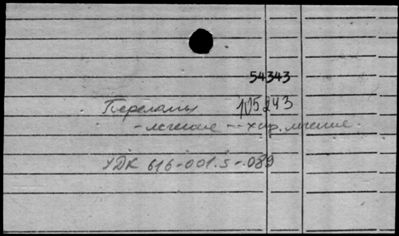 54343
Переломы 105243
-лечение -- хир. лечение.
УДК 616-001.5-089